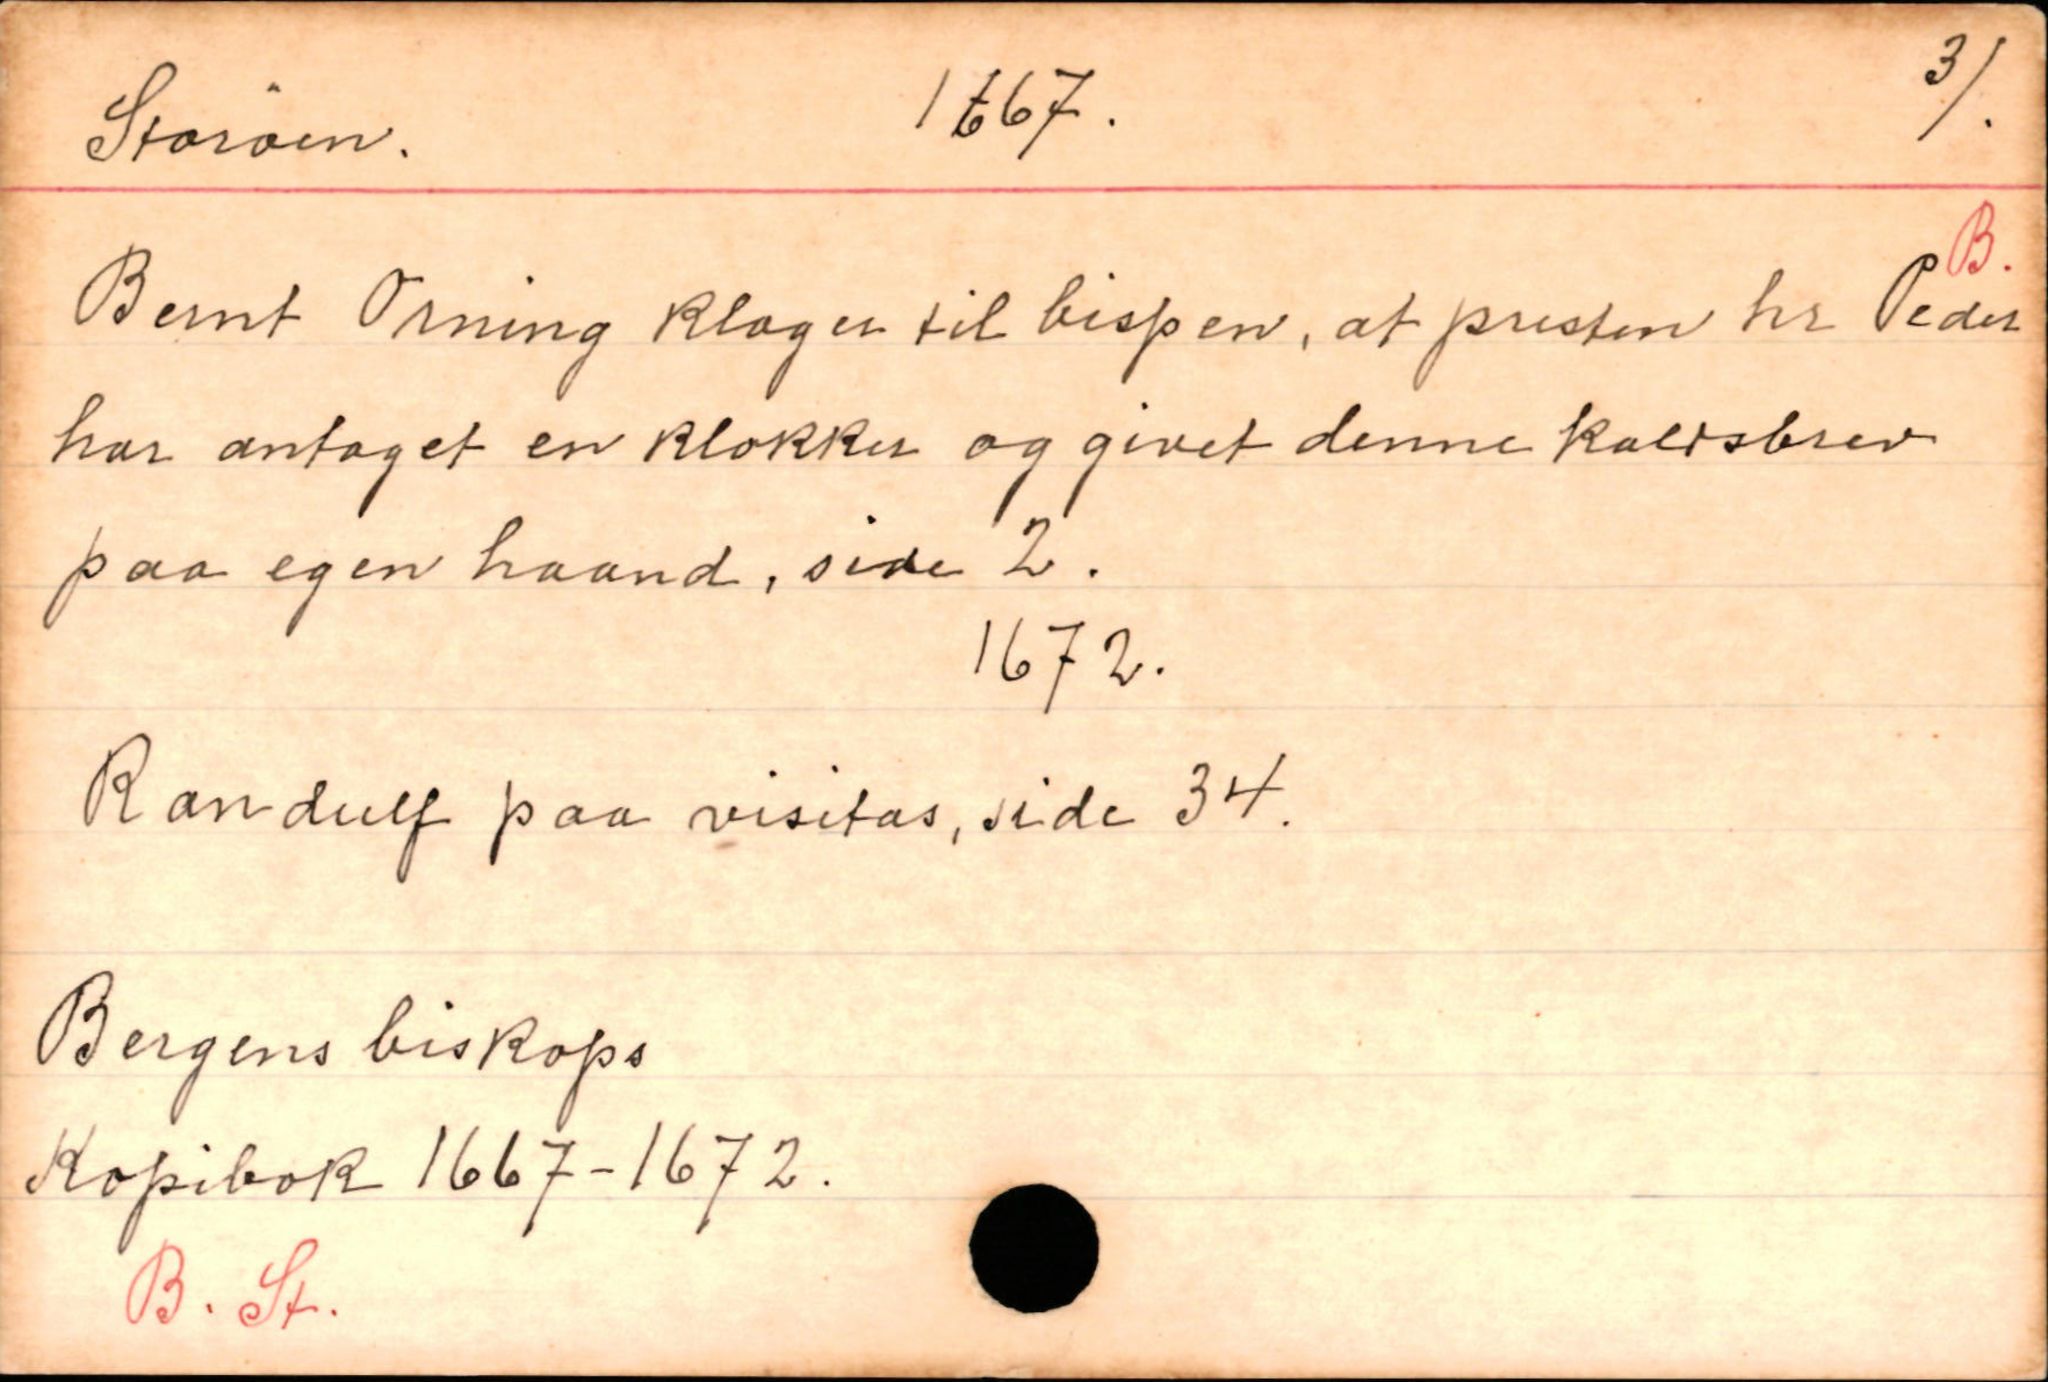 Storöen. 1667. 3/.
B.
Bernt Orning klager til bispen, at presten hr Peder
har antaget en klokker og givet denne kaldsbrev
paa egen haand, side 2.
1672.
Randulf paa visitas, side 34.
Bergens biskops
Kopibok 1667-1672.
B. St.